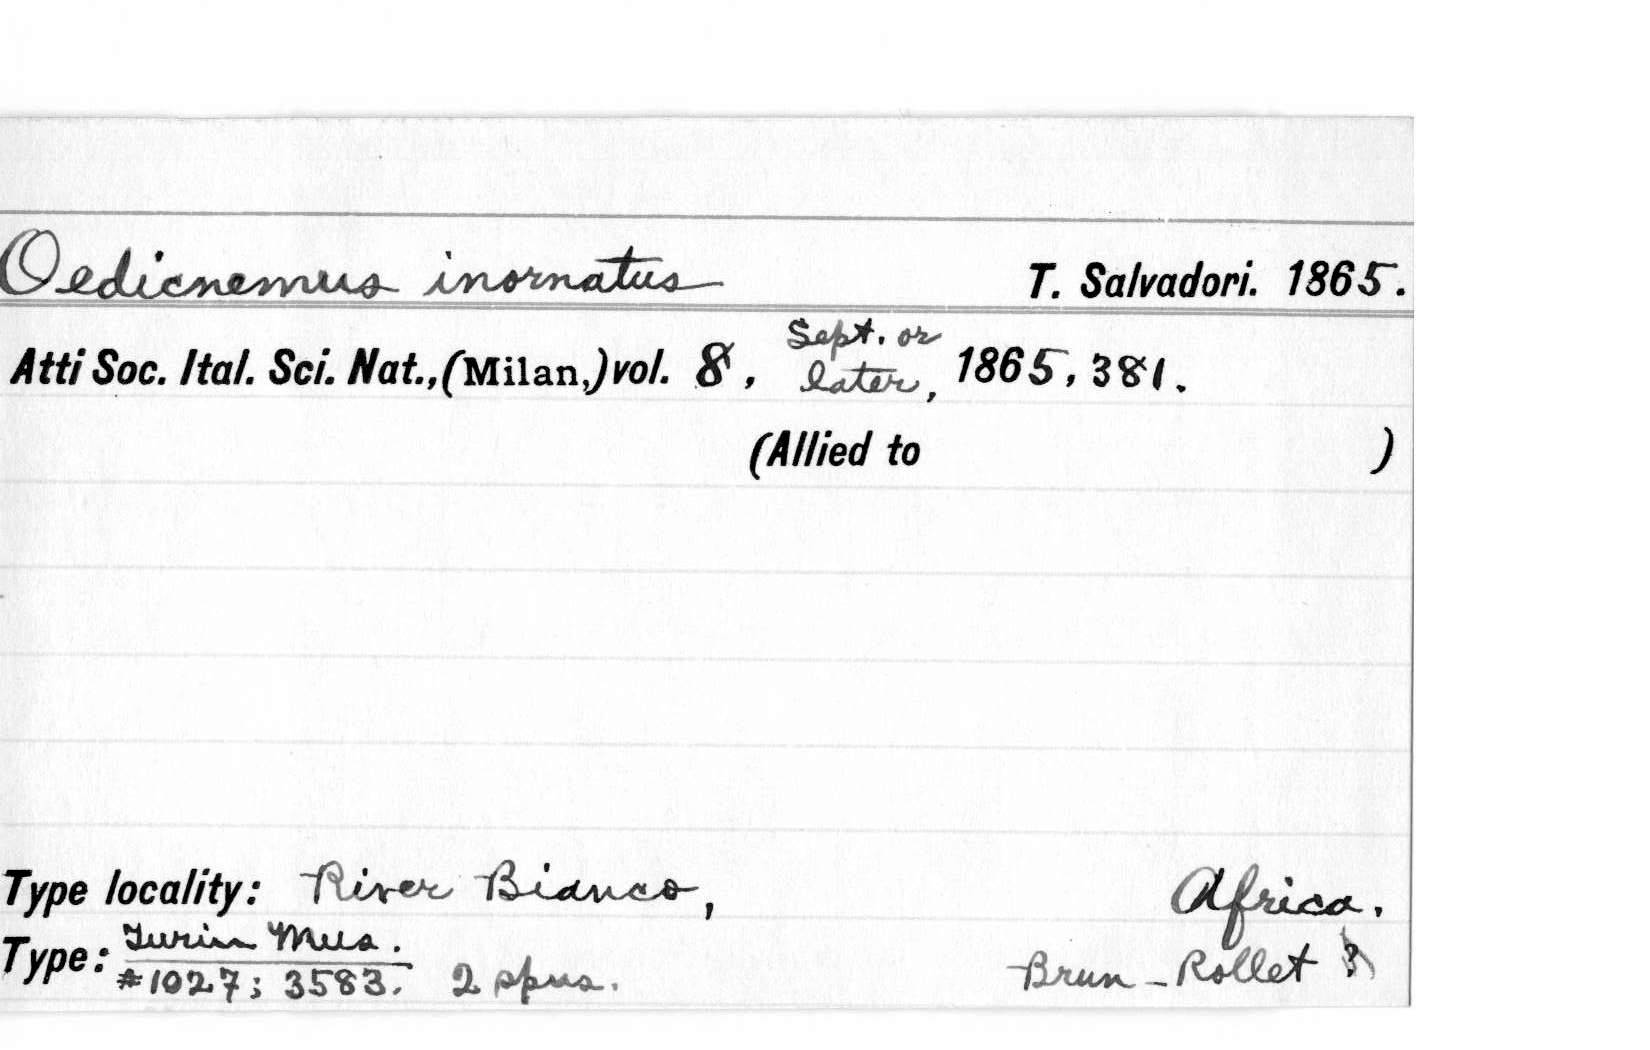 Oedicnemus inornatus T. Salvadori. 1865.
Atti Soc. Ital. Sci. Nat., (Milan,) vol. 8, Sept. or later, 1865, 381.
(Allied to )
Type locality: River Bianco, Africa.
Type: Turin Mus. Brun-Rollet
#1027; 3583. 2 spns.